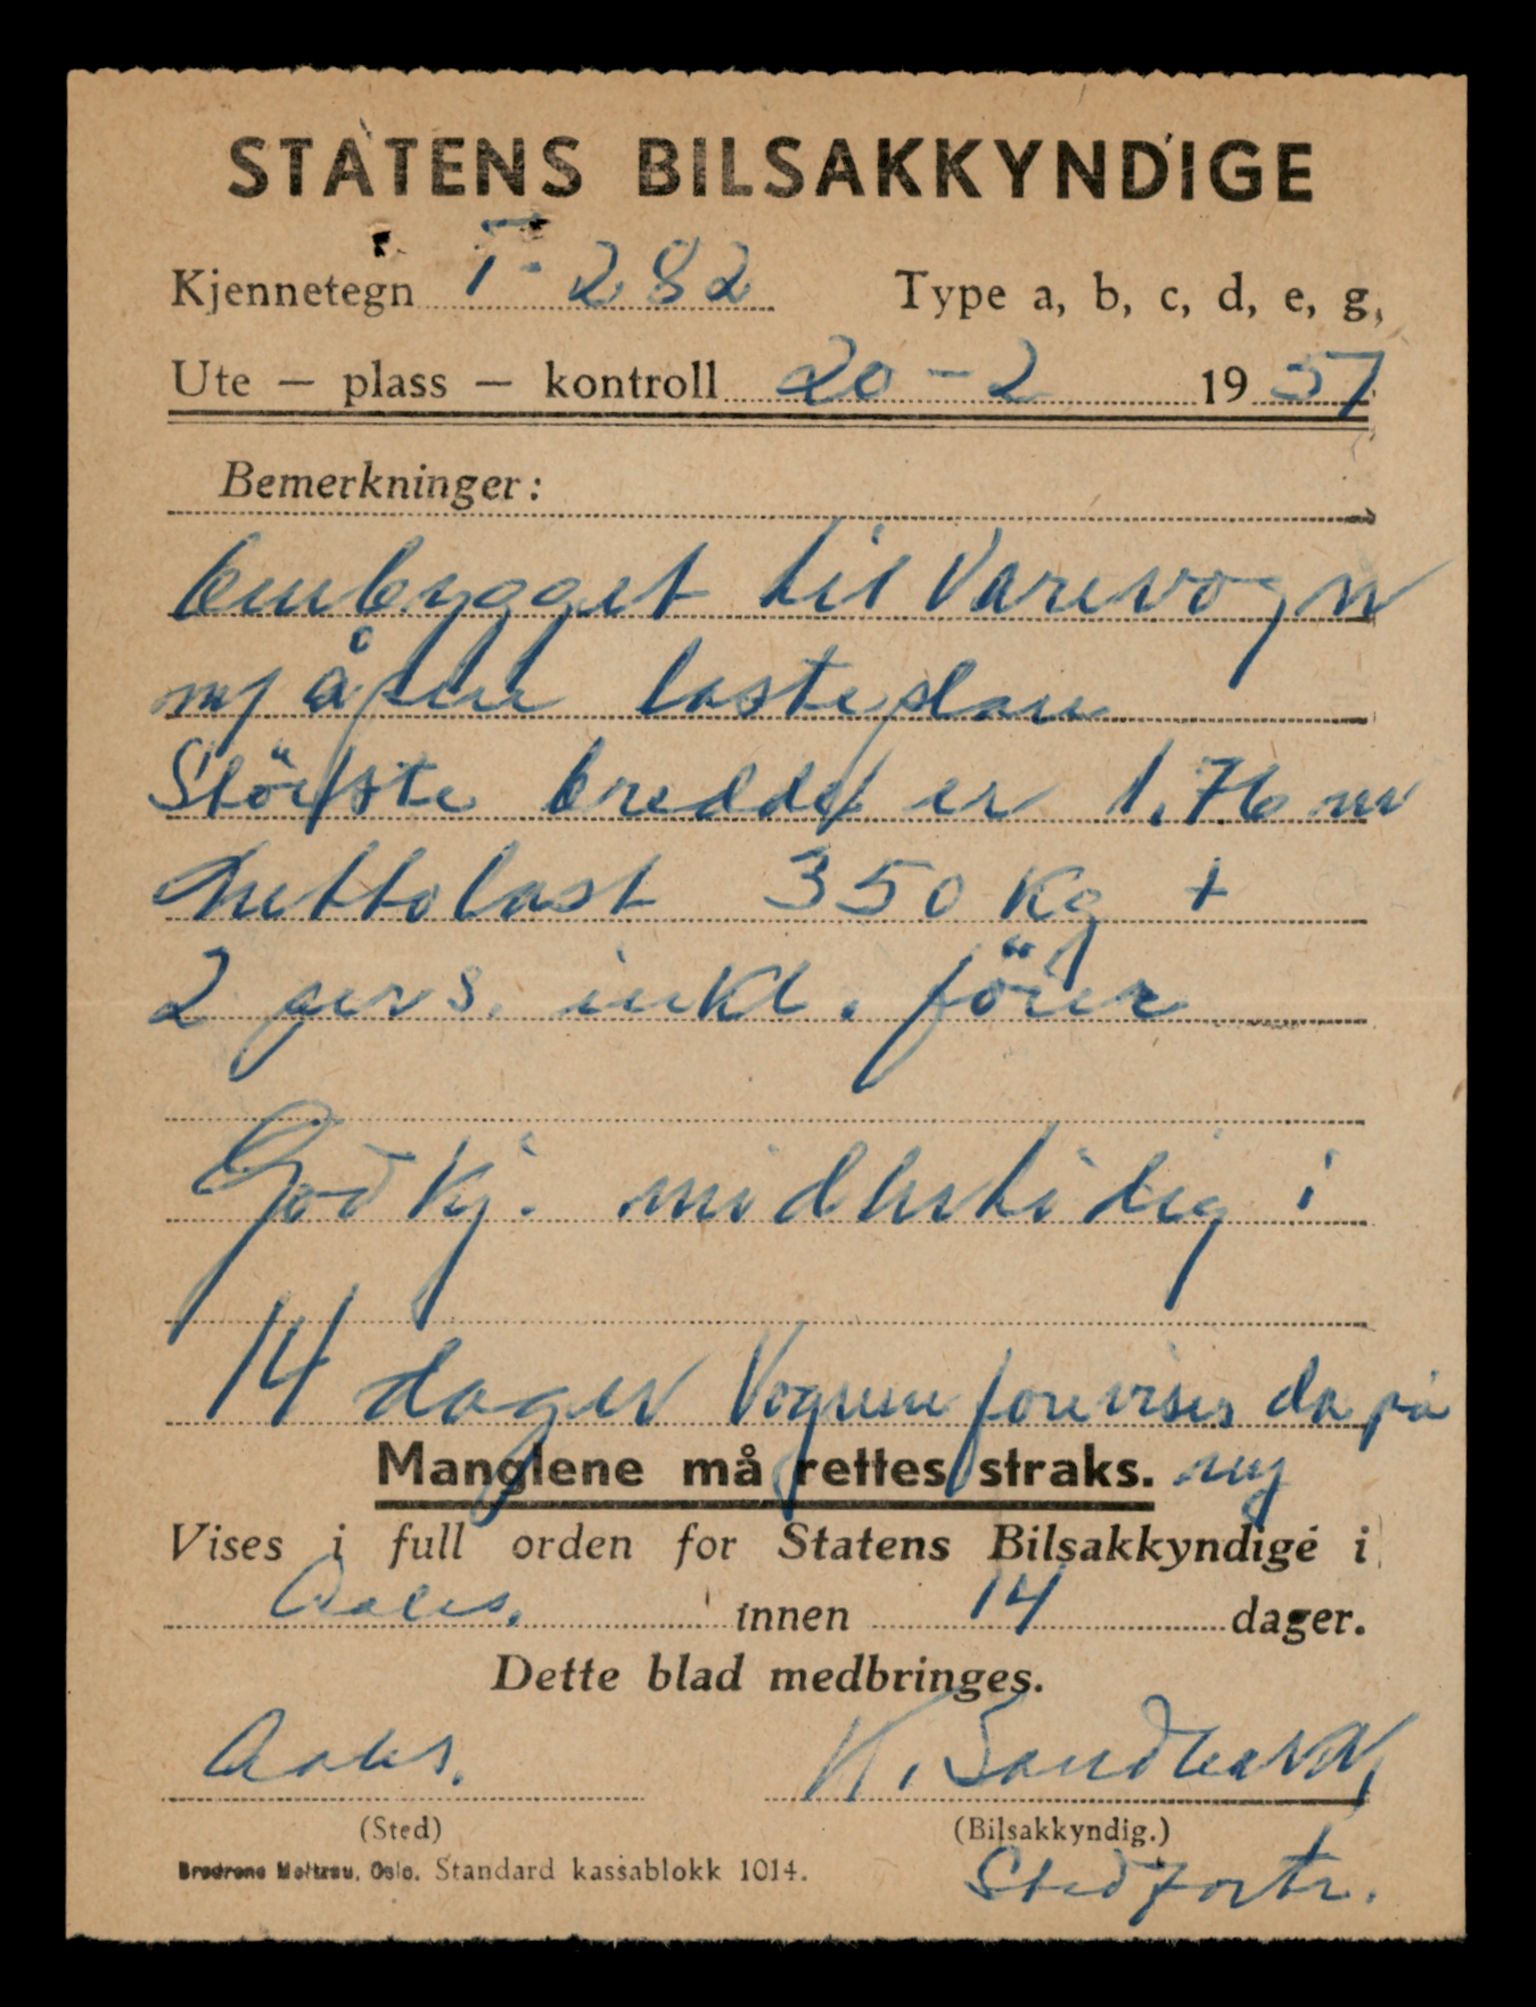 STATENS BILSAKKYNDIGE
Kjennetegn T-282 Type a, b, c, d, e, g,
Ute — plass — kontroll 20-2 1957
Bemerkninger:
Ombygget til Varevogn
m/ åpen lasteplan
Störste bredde er 1,76 m
Nettolast 350 Kg +
2 pers. inkl. förer
Godkj. midlertidig i
14 dager Vognen forevises da på
Manglene må rettes straks. ny
Vises i full orden for Statens Bilsakkyndige i
Aales. innen 14 dager.
Dette blad medbringes.
Aales. K. Sandberg
(Sted) (Bilsakkyndig.)
Brødrene Oslo. Standard kassablokk 1014. Stedfortr.